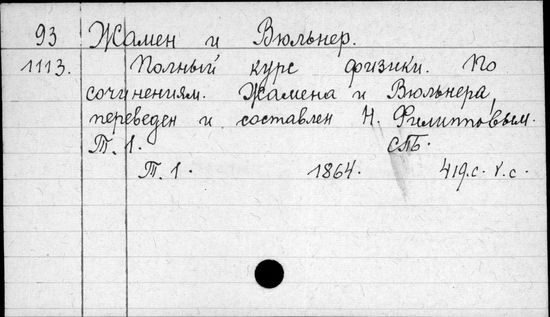 93 Жамен и Вюльнер.
1113. Полный курс физики. По
сочинениям. Жамена и Вюльнера,
переведен и составлен Н. Филипповым.
Т. 1. СПБ.
Т. 1. 1864. 419 с. V. с.